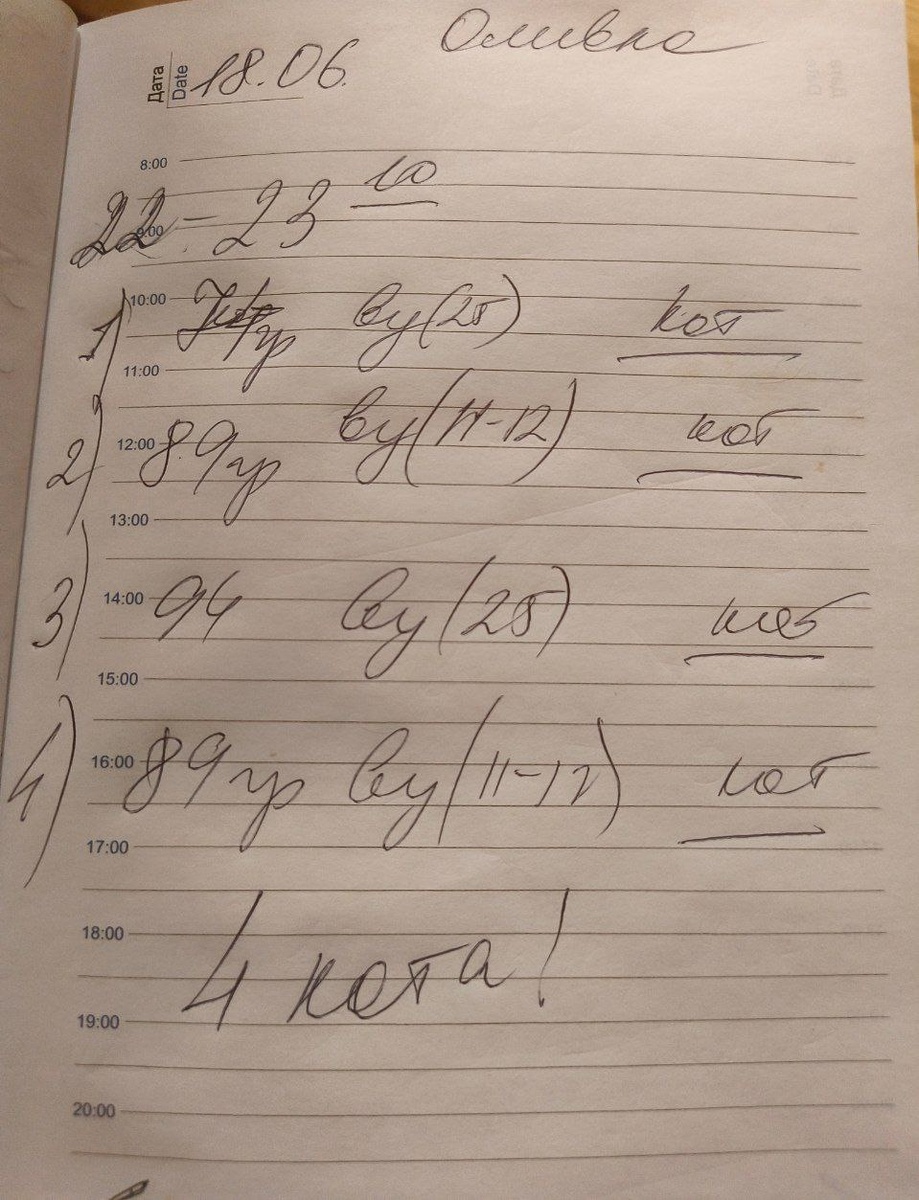 Оливка
Дата
Date 18.06.
8:00
22 - 23 10
9:00
10:00
1) гр ву(25) кот
11:00
2) 12:00 89 гр ву(11-12) кот
13:00
3) 14:00 94 ву(25) кот
15:00
4) 16:00 89 гр ву(11-12) кот
17:00
18:00
4 кота!
19:00
20:00